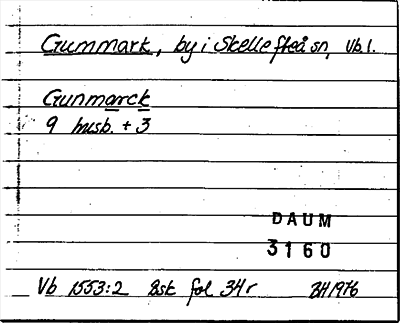 Gummark, by i Skellefteå sn, Vb l.
Gunmarck
9 husb. + 3
DAUM
3160
Vb 1553:2 Bsk fol 34r BH 1976